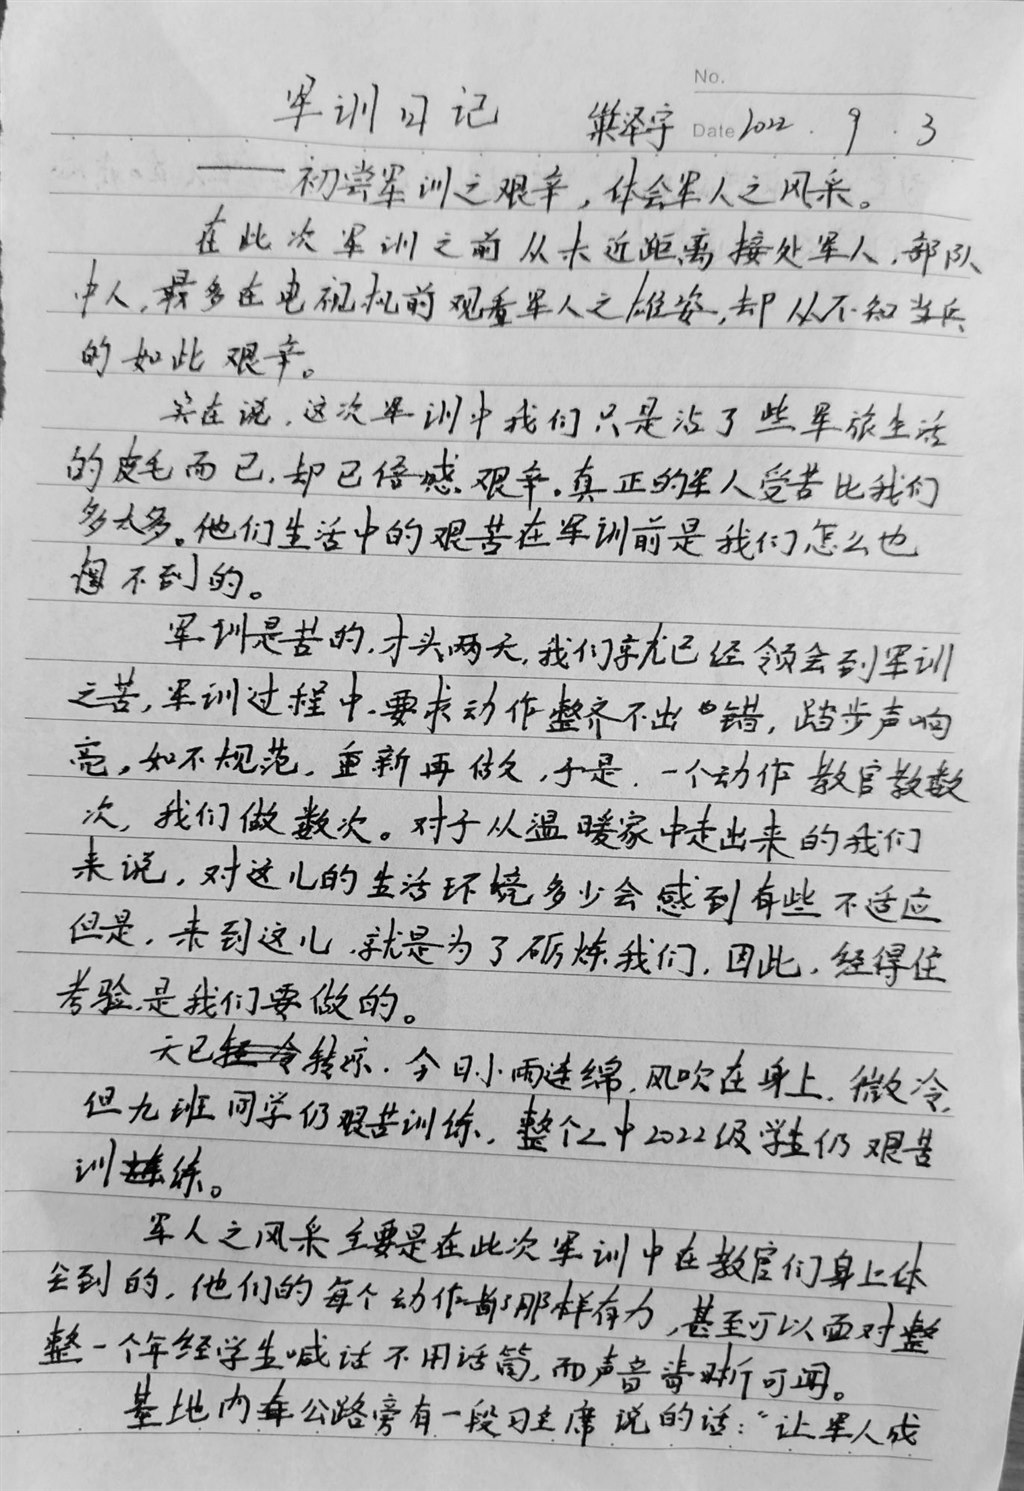 No.
军训日记 樊泽宇 Date 2022 . 9 . 3
——初尝军训之艰辛，体会军人之风采。
在此次军训之前从未近距离接处军人，部队
中人，最多在电视机前观看军人之雄姿，却从不知当兵
的如此艰辛。
实在说，这次军训中我们只是沾了些军旅生活
的皮毛而已，却已倍感艰辛。真正的军人受苦比我们
多太多。他们生活中的艰苦在军训前是我们怎么也
想不到的。
军训是苦的，才头两天，我们就已经领会到军训
之苦，军训过程中，要求动作整齐不出错，踏步声响
亮，如不规范，重新再做，于是，一个动作教官教数
次，我们做数次。对于从温暖家中走出来的我们
来说，对这儿的生活环境多少会感到有些不适应
但是，来到这儿，就是为了砺炼我们，因此，经得住
考验，是我们要做的。
天已转凉，今日小雨连绵，风吹在身上，微冷，
但九班同学仍艰苦训练，整个二中2022级学生仍艰苦
训练。
军人之风采主要是在此次军训中在教官们身上体
会到的，他们的每个动作都那样有力，甚至可以面对整
整一个年经学生喊话不用话筒，而声音清晰可闻。
基地内公路旁有一段习主席说的话：“让军人成